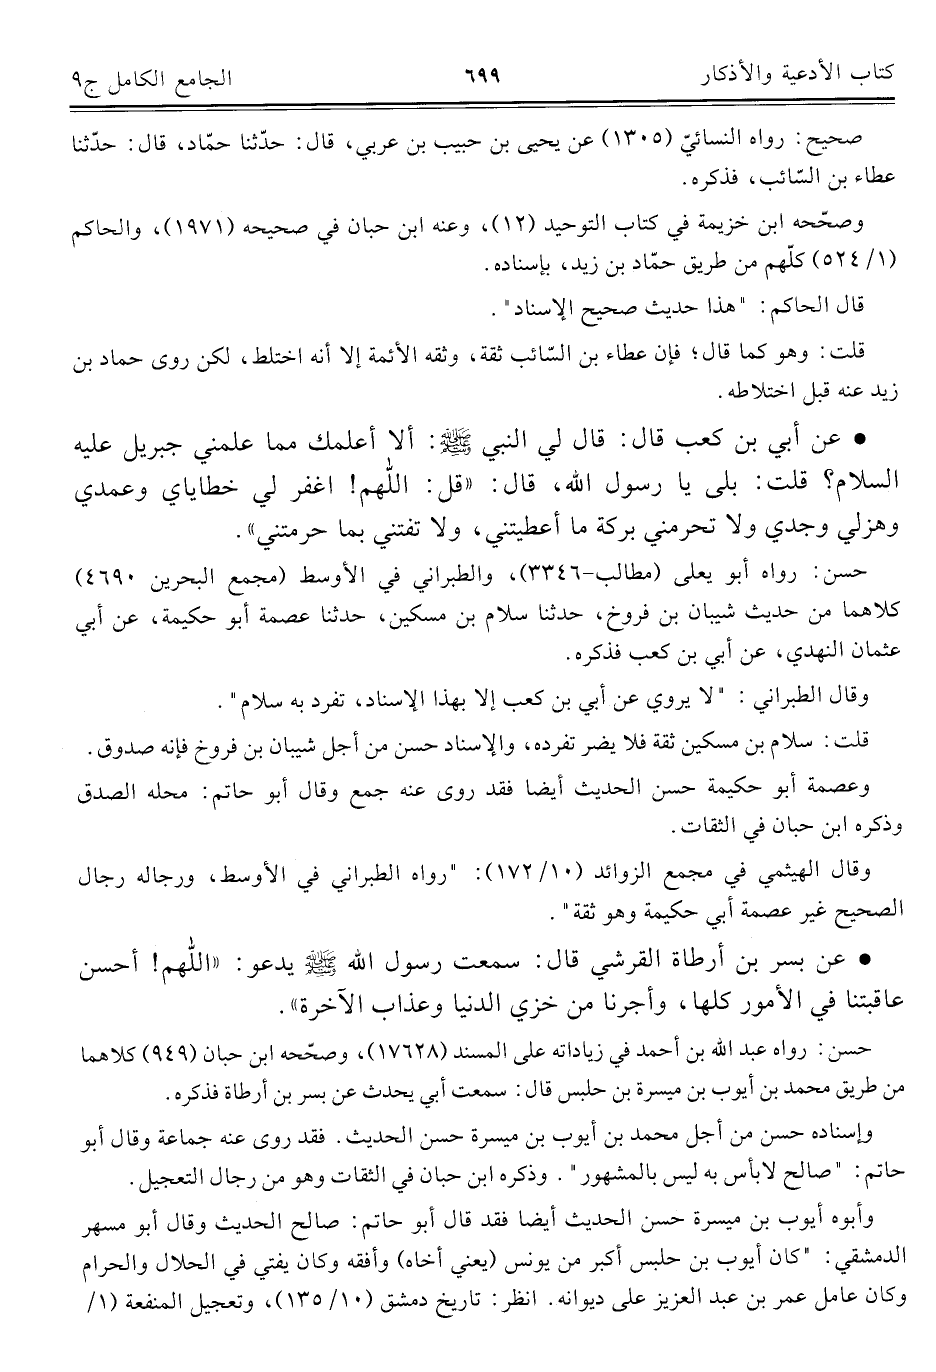 كتاب الأدعية والأذكار ٦٩٩ الجامع الكامل ج٩
صحيح: رواه النسائيّ (١٣٠٥) عن يحيى بن حبيب بن عربي، قال: حدّثنا حمّاد، قال: حدّثنا
عطاء بن السّائب، فذكره.
وصحّحه ابن خزيمة في كتاب التوحيد (١٢)، وعنه ابن حبان في صحيحه (١٩٧١)، والحاكم
(١/ ٥٢٤) كلّهم من طريق حمّاد بن زيد، بإسناده.
قال الحاكم: "هذا حديث صحيح الإسناد".
قلت: وهو كما قال؛ فإن عطاء بن السّائب ثقة، وثقه الأئمة إلا أنه اختلط، لكن روى حماد بن
زيد عنه قبل اختلاطه.
• عن أبي بن كعب قال: قال لي النبي ﷺ: ألا أعلمك مما علمني جبريل عليه
السلام؟ قلت: بلى يا رسول الله، قال: «قل: اللّهم! اغفر لي خطاياي وعمدي
وهزلي وجدي ولا تحرمني بركة ما أعطيتني، ولا تفتني بما حرمتني».
حسن: رواه أبو يعلى (مطالب-٣٣٤٦)، والطبراني في الأوسط (مجمع البحرين ٤٦٩٠)
كلاهما من حديث شيبان بن فروخ، حدثنا سلام بن مسكين، حدثنا عصمة أبو حكيمة، عن أبي
عثمان النهدي، عن أبي بن كعب فذكره.
وقال الطبراني : "لا يروي عن أبي بن كعب إلا بهذا الإسناد، تفرد به سلام".
قلت: سلام بن مسكين ثقة فلا يضر تفرده، والإسناد حسن من أجل شيبان بن فروخ فإنه صدوق.
وعصمة أبو حكيمة حسن الحديث أيضا فقد روى عنه جمع وقال أبو حاتم: محله الصدق
وذكره ابن حبان في الثقات.
وقال الهيثمي في مجمع الزوائد (١٠/ ١٧٢): "رواه الطبراني في الأوسط، ورجاله رجال
الصحيح غير عصمة أبي حكيمة وهو ثقة".
• عن بسر بن أرطاة القرشي قال: سمعت رسول الله ﷺ يدعو: «اللّهم! أحسن
عاقبتنا في الأمور كلها، وأجرنا من خزي الدنيا وعذاب الآخرة».
حسن: رواه عبد الله بن أحمد في زياداته على المسند (١٧٦٢٨)، وصحّحه ابن حبان (٩٤٩) كلاهما
من طريق محمد بن أيوب بن ميسرة بن حلبس قال: سمعت أبي يحدث عن بسر بن أرطاة فذكره.
وإسناده حسن من أجل محمد بن أيوب بن ميسرة حسن الحديث. فقد روى عنه جماعة وقال أبو
حاتم: "صالح لابأس به ليس بالمشهور". وذكره ابن حبان في الثقات وهو من رجال التعجيل.
وأبوه أيوب بن ميسرة حسن الحديث أيضا فقد قال أبو حاتم: صالح الحديث وقال أبو مسهر
الدمشقي: "كان أيوب بن حلبس أكبر من يونس (يعني أخاه) وأفقه وكان يفتي في الحلال والحرام
وكان عامل عمر بن عبد العزيز على ديوانه. انظر: تاريخ دمشق (١٠/ ١٣٥)، وتعجيل المنفعة (١/